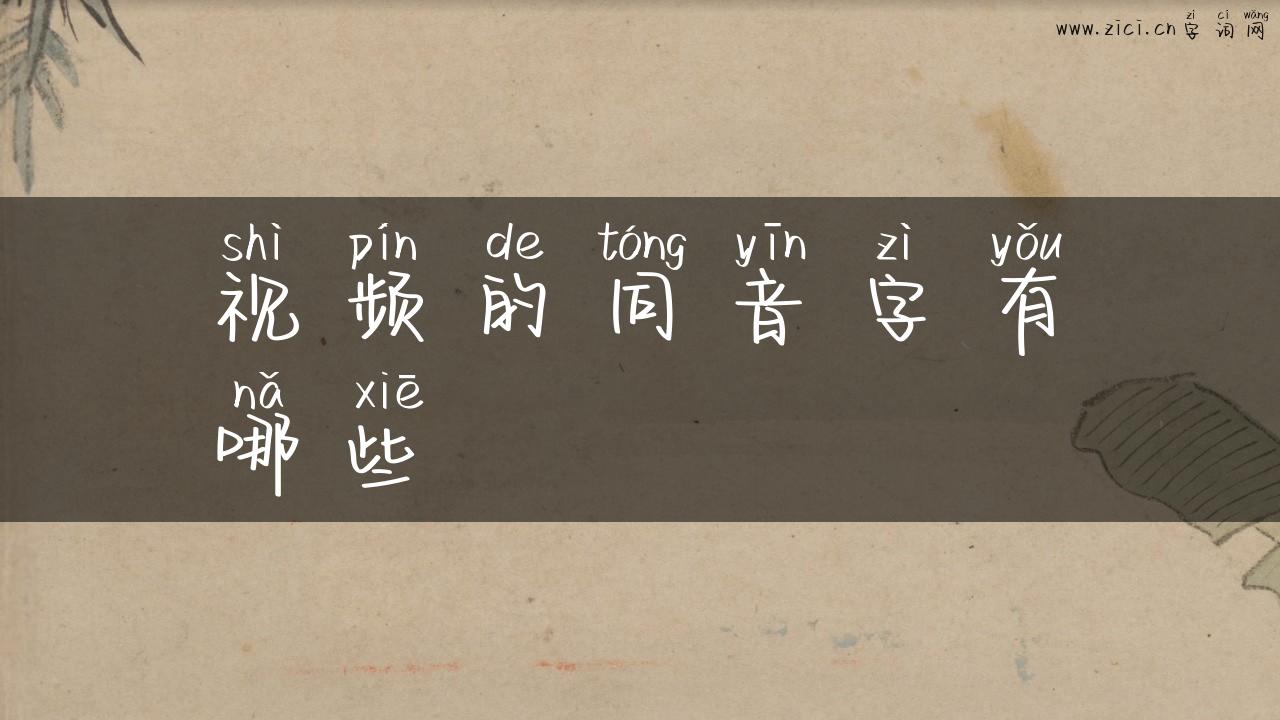 zì cí wǎng
www.zici.cn 字词网
shì pín de tóng yīn zì yǒu
视频的同音字有
nǎ xiē
哪些